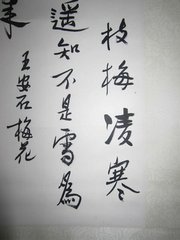 枝梅凌寒
遥知不是雪為
来
王安石梅花